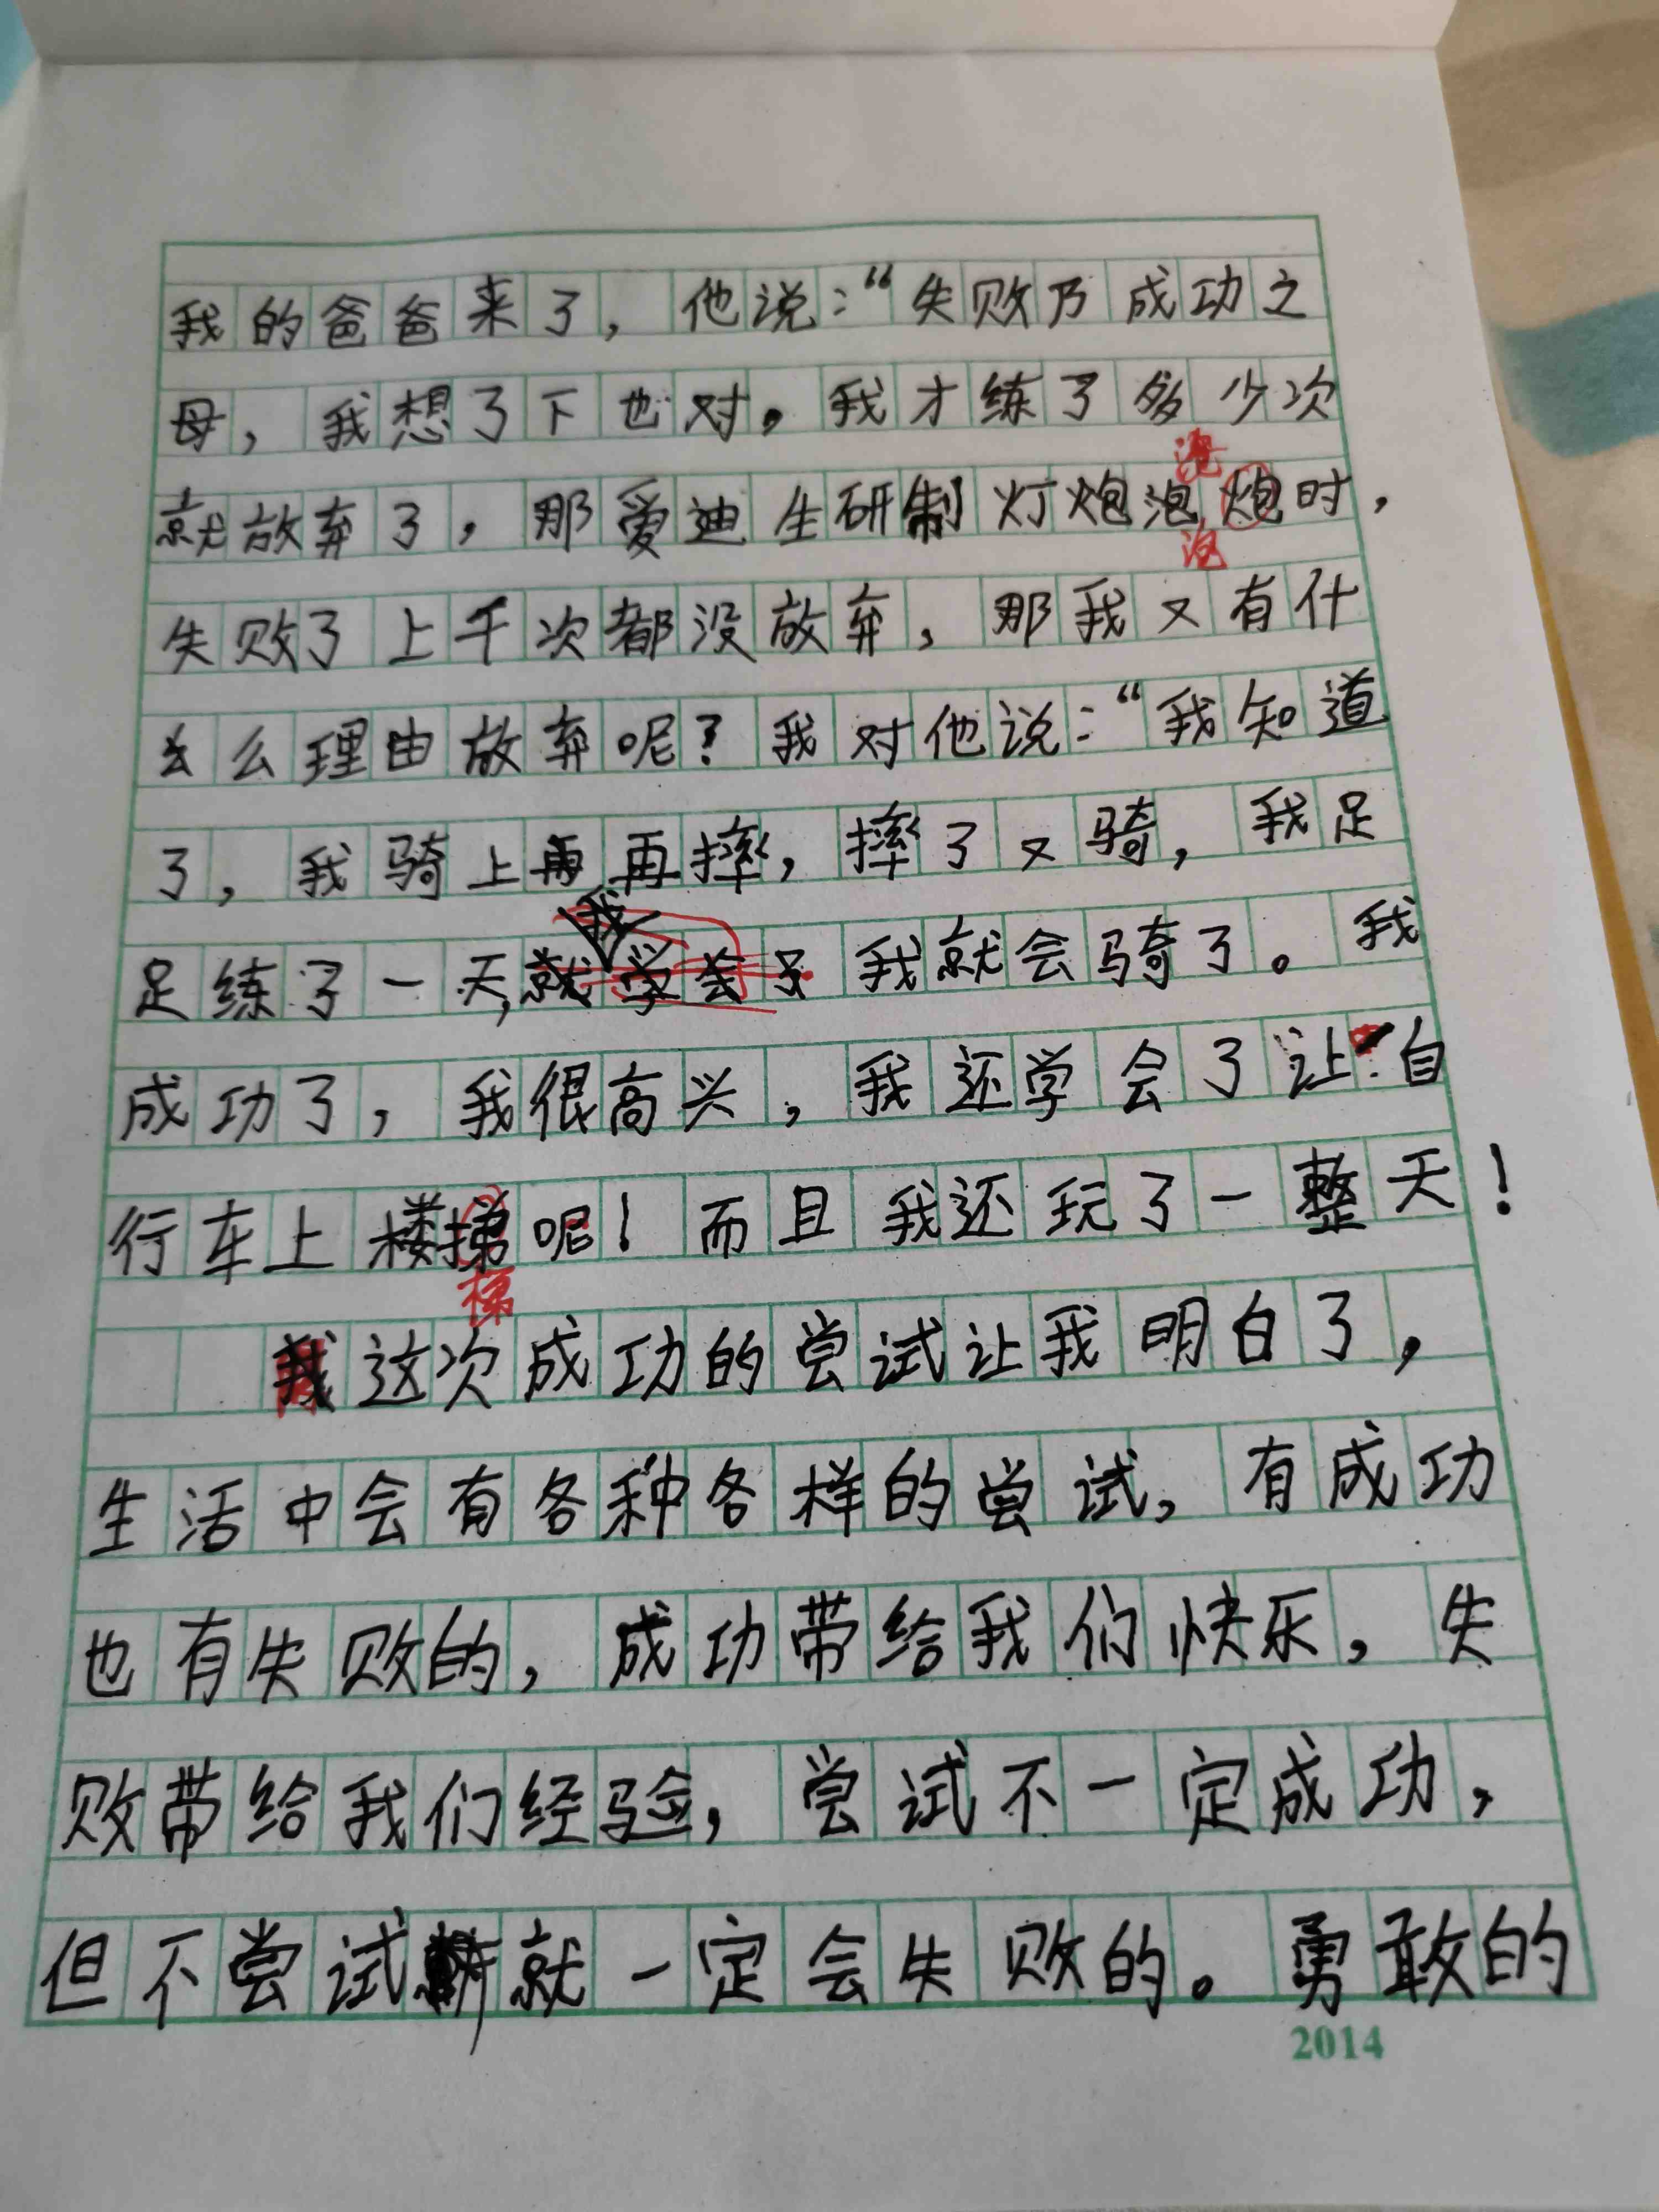 我的爸爸来了，他说：“失败乃成功之
母，我想了下也对。我才练了多少次
就放弃了，那爱迪生研制灯炮泡炮时，
泡
泡
失败了上千次都没放弃，那我又有什
么么理由放弃呢？我对他说：“我知道
了，我骑上再再摔，摔了又骑，我足
我
足练了一天，就学会了我就会骑了。我
成功了，我很高兴，我还学会了让自
行车上楼挮呢！而且我还玩了一整天！
梯
我这次成功的尝试让我明白了，
生活中会有各种各样的尝试，有成功
也有失败的，成功带给我们快乐，失
败带给我们经验，尝试不一定成功，
但不尝试就一定会失败的。勇敢的
2014